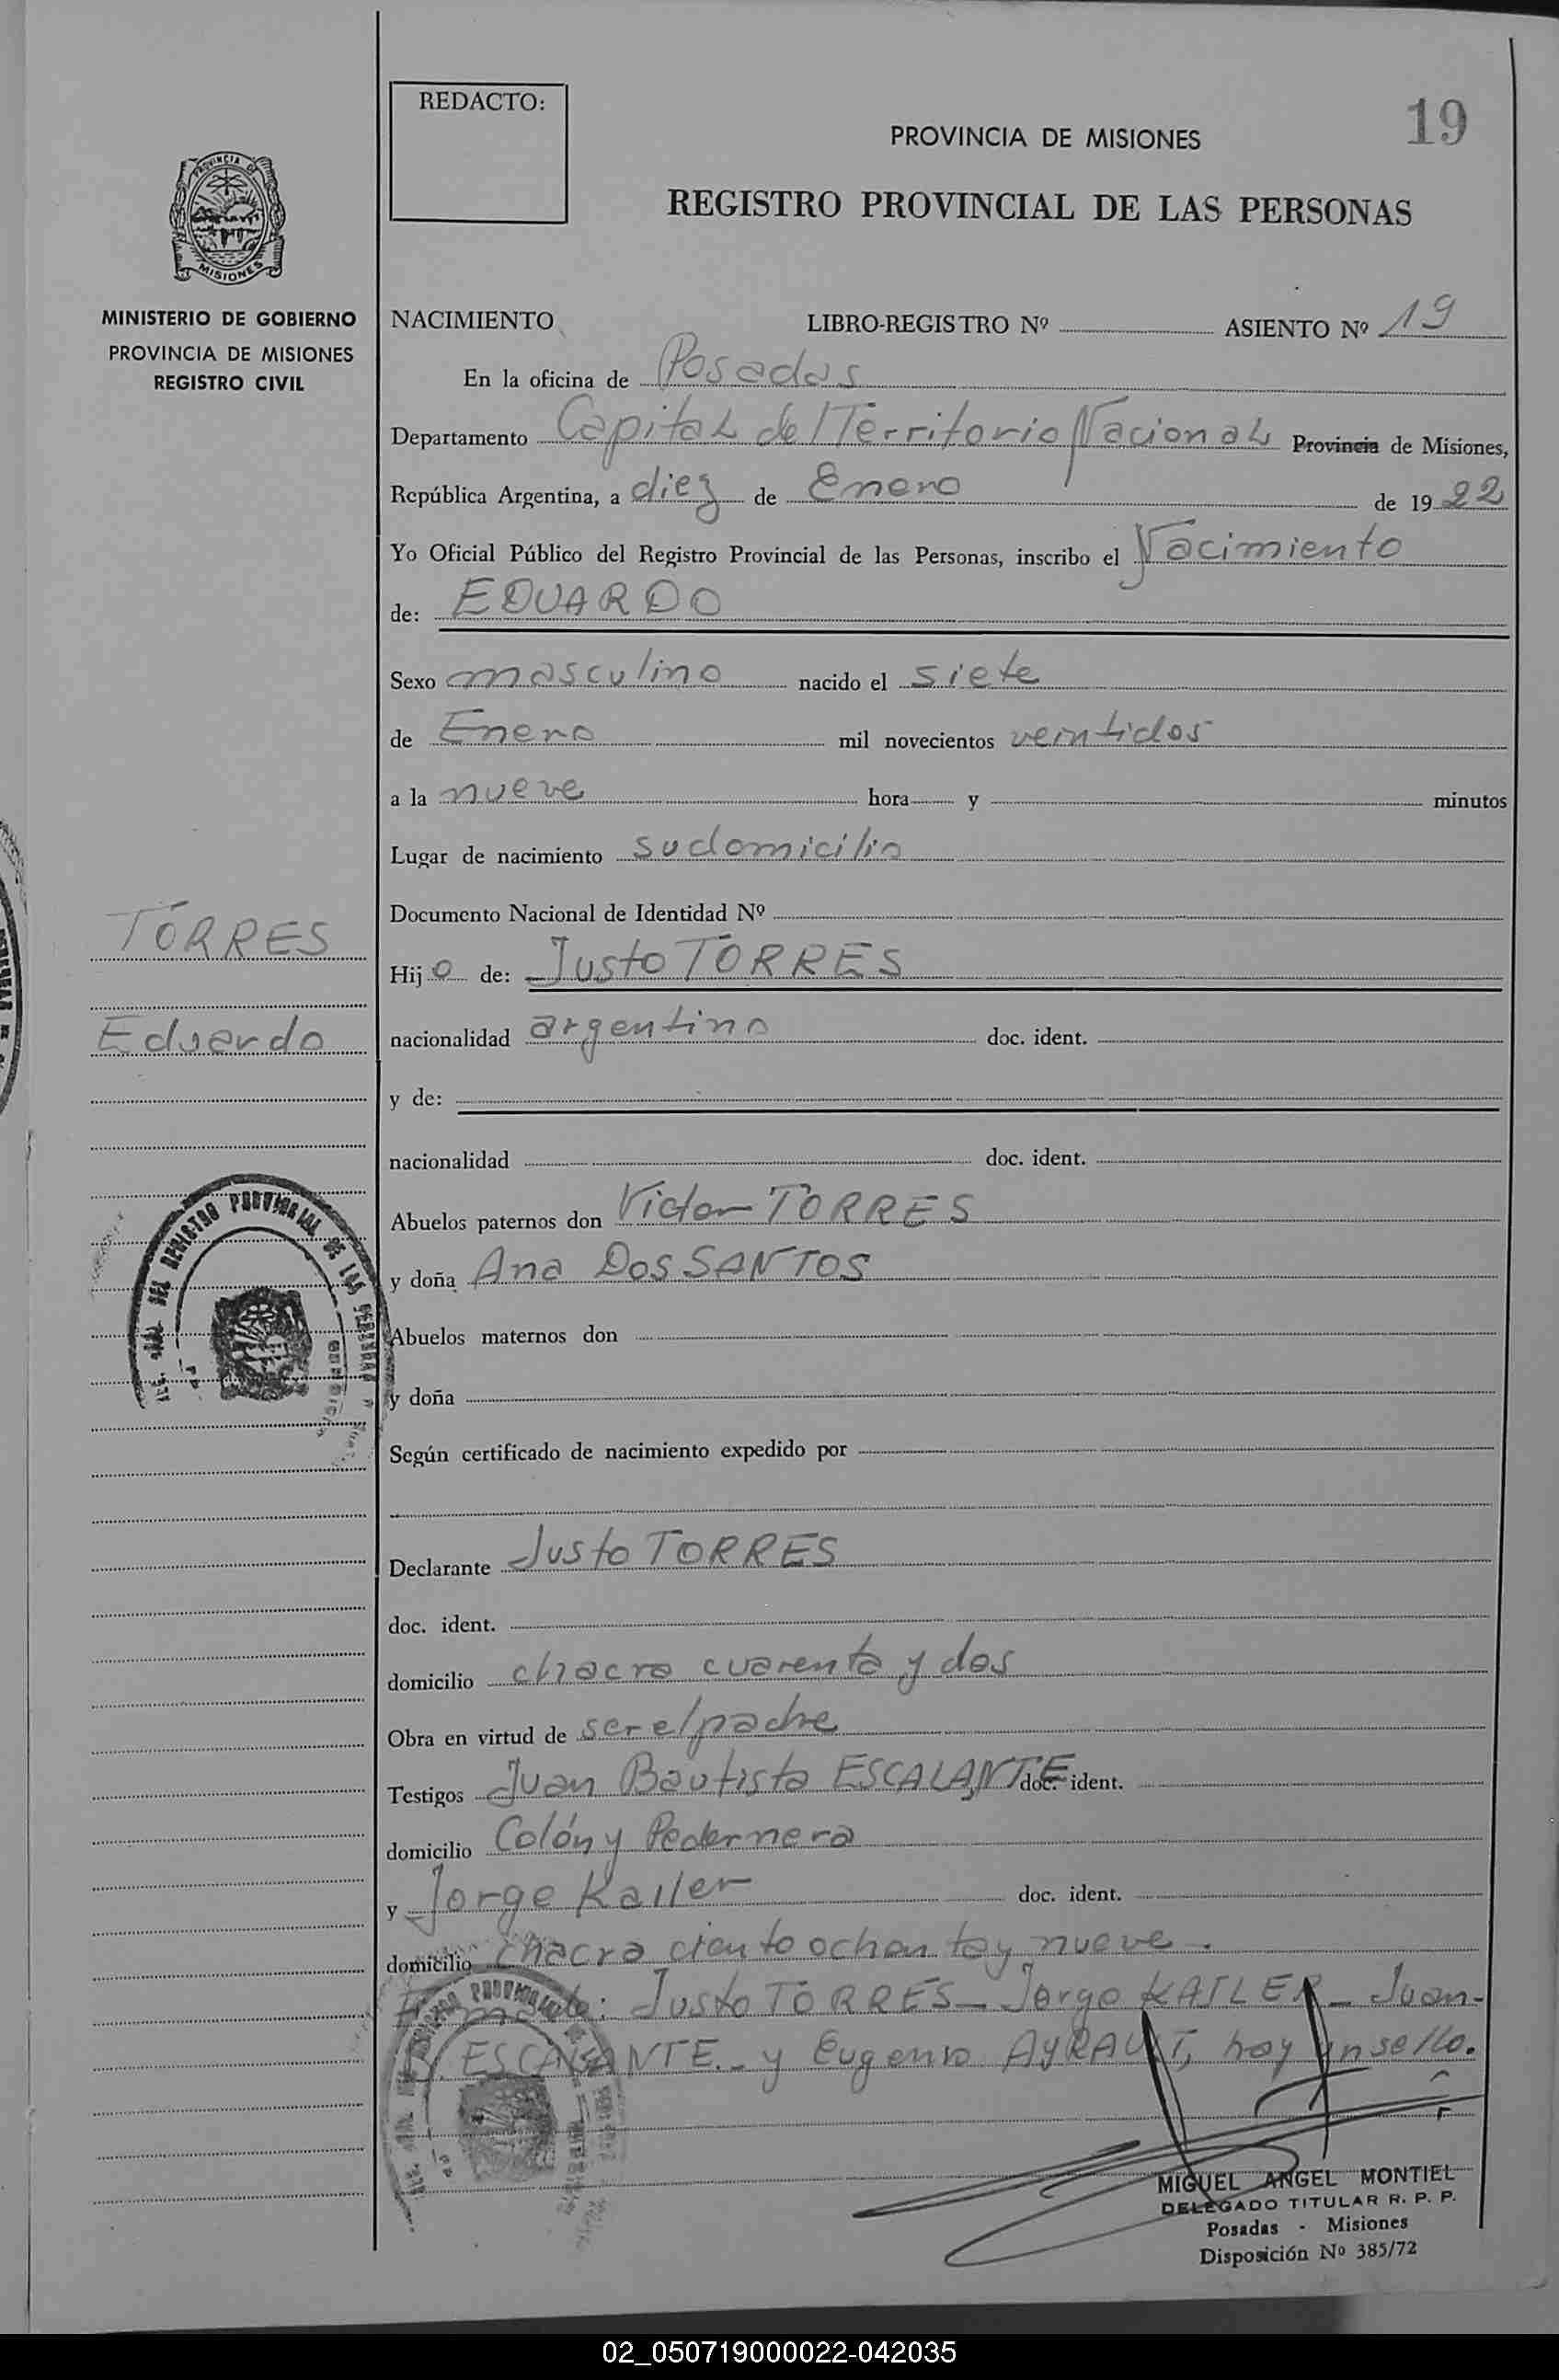 REDACTO:
19
PROVINCIA DE MISIONES
REGISTRO PROVINCIAL DE LAS PERSONAS
PROVINCIA DE
MISIONES
MINISTERIO DE GOBIERNO
PROVINCIA DE MISIONES
REGISTRO CIVIL
NACIMIENTO LIBRO-REGISTRO Nº ASIENTO Nº 19
En la oficina de Posadas
Departamento Capital del Territorio Nacional Provincia de Misiones,
República Argentina, a diez de Enero de 1922
Yo Oficial Público del Registro Provincial de las Personas, inscribo el Nacimiento
de: EDUARDO
Sexo masculino nacido el siete
de Enero mil novecientos veintidos
a la nueve hora y minutos
Lugar de nacimiento su domicilio
Documento Nacional de Identidad Nº
TORRES
Hijo de: Justo TORRES
Eduardo
nacionalidad argentino doc. ident.
y de:
nacionalidad doc. ident.
Abuelos paternos don Victor TORRES
y doña Ana DOS SANTOS
Abuelos maternos don
y doña
DEL REGISTRO PROVINCIAL DE LAS PERSONAS
Según certificado de nacimiento expedido por
Declarante Justo TORRES
doc. ident.
domicilio chacra cuarenta y dos
Obra en virtud de ser el padre
Testigos Juan Bautista ESCALANTE doc. ident.
domicilio Colón y Pedernera
y Jorge Kailer doc. ident.
domicilio chacra ciento ochenta y nueve.
Justo TORRES - Jorge KAILER - Juan-
ESCALANTE.- y Eugenio AYRAULT, hay un sello.
MIGUEL ANGEL MONTIEL
DELEGADO TITULAR R. P. P.
Posadas - Misiones
Disposición Nº 385/72
02_050719000022-042035